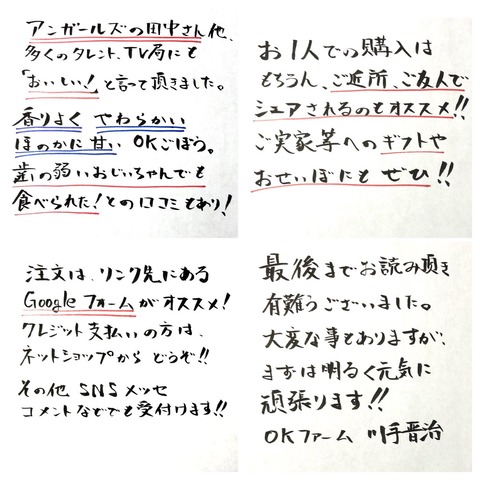 アンガールズの田中さん他、
多くのタレント、TV局にも
「おいしい！」と言って頂きました。
香りよく やわらかい
ほのかに甘い OKごぼう。
歯の弱いおじいちゃんでも
食べられた！との口コミもあり！
お1人での購入は
もちろん、ご近所、ご友人で
シェアされるのもオススメ！！
ご実家等へのギフトや
おせいぼにも ぜひ！！
注文は、リンク先にある
Googleフォームがオススメ！
クレジット支払いの方は、
ネットショップから どうぞ！！
その他 SNS メッセ
コメントなどでも受付けます！！
最後までお読み頂き
有難うございました。
大変な事もありますが、
まずは明るく元気に
頑張ります！！
OKファーム 川手晋治